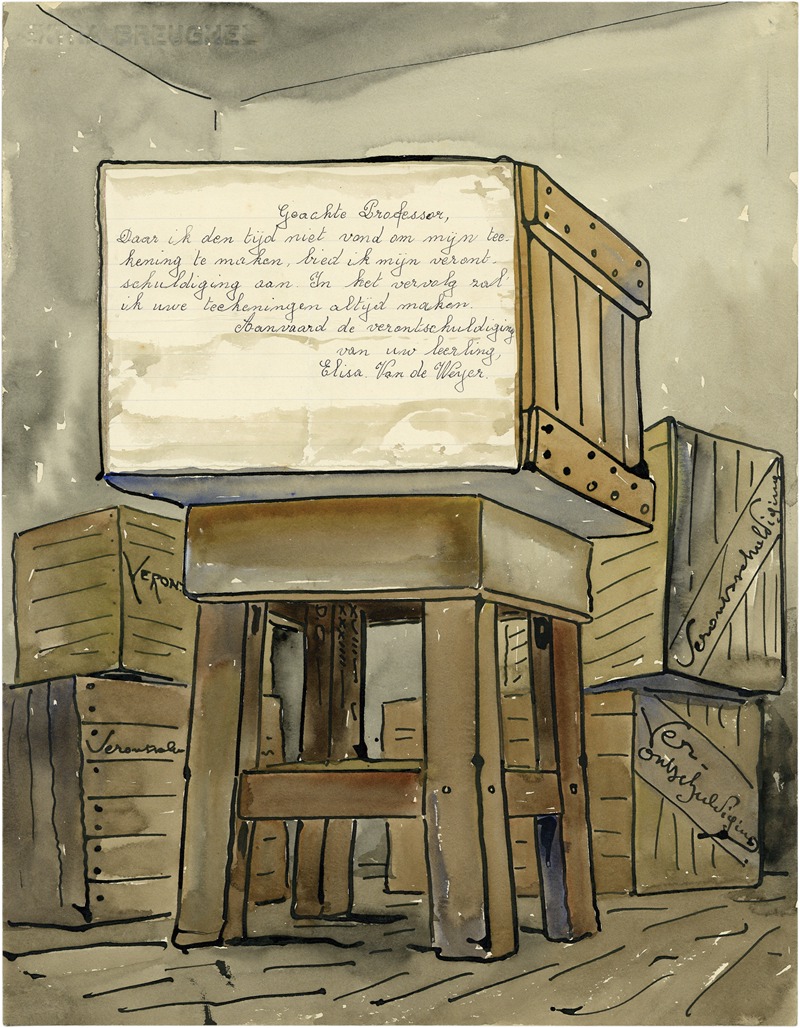 BREUGHEL
Geachte Professor,
Daar ik den tijd niet vond om mijn tee-
kening te maken, bied ik mijn veront-
schuldiging aan. In het vervolg zal
ik uwe teekeningen altijd maken.
Aanvaard de verontschuldiging
van uw leerling,
Elisa. Van de Weyer.
VERON
Verontschuldiging
Verontschu
Ver-
ontschuldiging